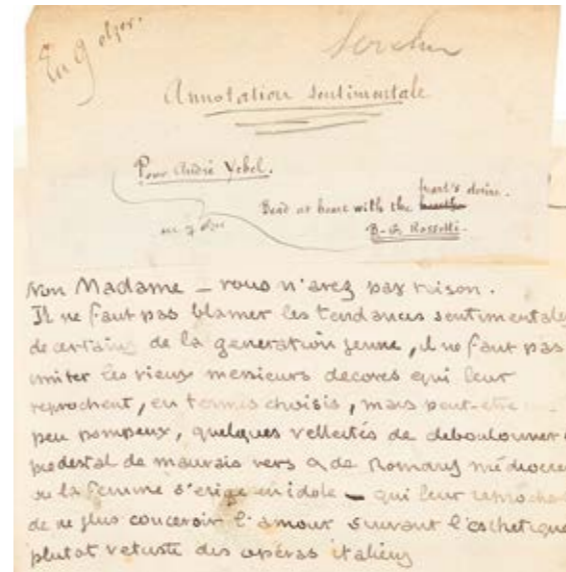 En 9 elzer.
Annotation sentimentale
Pour André Lebel.
heart's desire.
Dead at heart with the
en 9 elzer
D-G Rossetti.
Non Madame – vous n'avez pas raison.
Il ne faut pas blamer les tendances sentimentales
de certains de la generation jeune, il ne faut pas
imiter les vieux messieurs decores qui leur
reprochent, en termes choisis, mais peut-etre un
peu pompeux, quelques velleités de deboulonner
piedestal de mauvais vers & de Romans médiocres
ou la femme s'erige en idole – qui leur reprochent
de ne plus concevoir l'amour suivant l'esthetique
plutot vetuste des opéras italiens